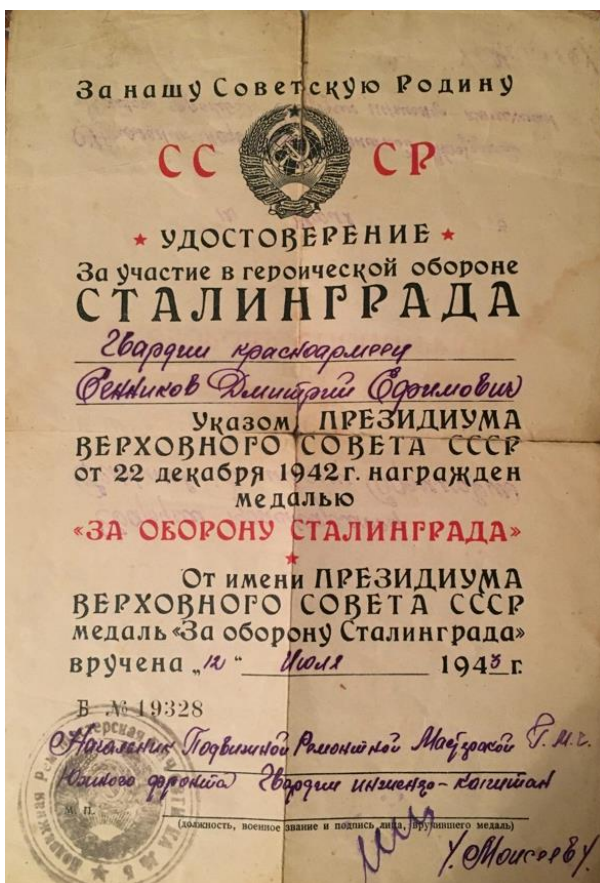 За нашу Советскую Родину
СС СР
★ УДОСТОВЕРЕНИЕ ★
За участие в героической обороне
СТАЛИНГРАДА
Гвардии красноармеец
Сенников Дмитрий Ефимович
Указом ПРЕЗИДИУМА
ВЕРХОВНОГО СОВЕТА СССР
от 22 декабря 1942 г. награжден
медалью
«ЗА ОБОРОНУ СТАЛИНГРАДА»
От имени ПРЕЗИДИУМА
ВЕРХОВНОГО СОВЕТА СССР
медаль «За оборону Сталинграда»
вручена „12“ Июля 1943 г.
Б № 19328
Начальник Подвижной Ремонтной Мастерской
Южного фронта Гвардии инженер-капитан
М. П.
(должность, военное звание и подпись лица, вручившего медаль)